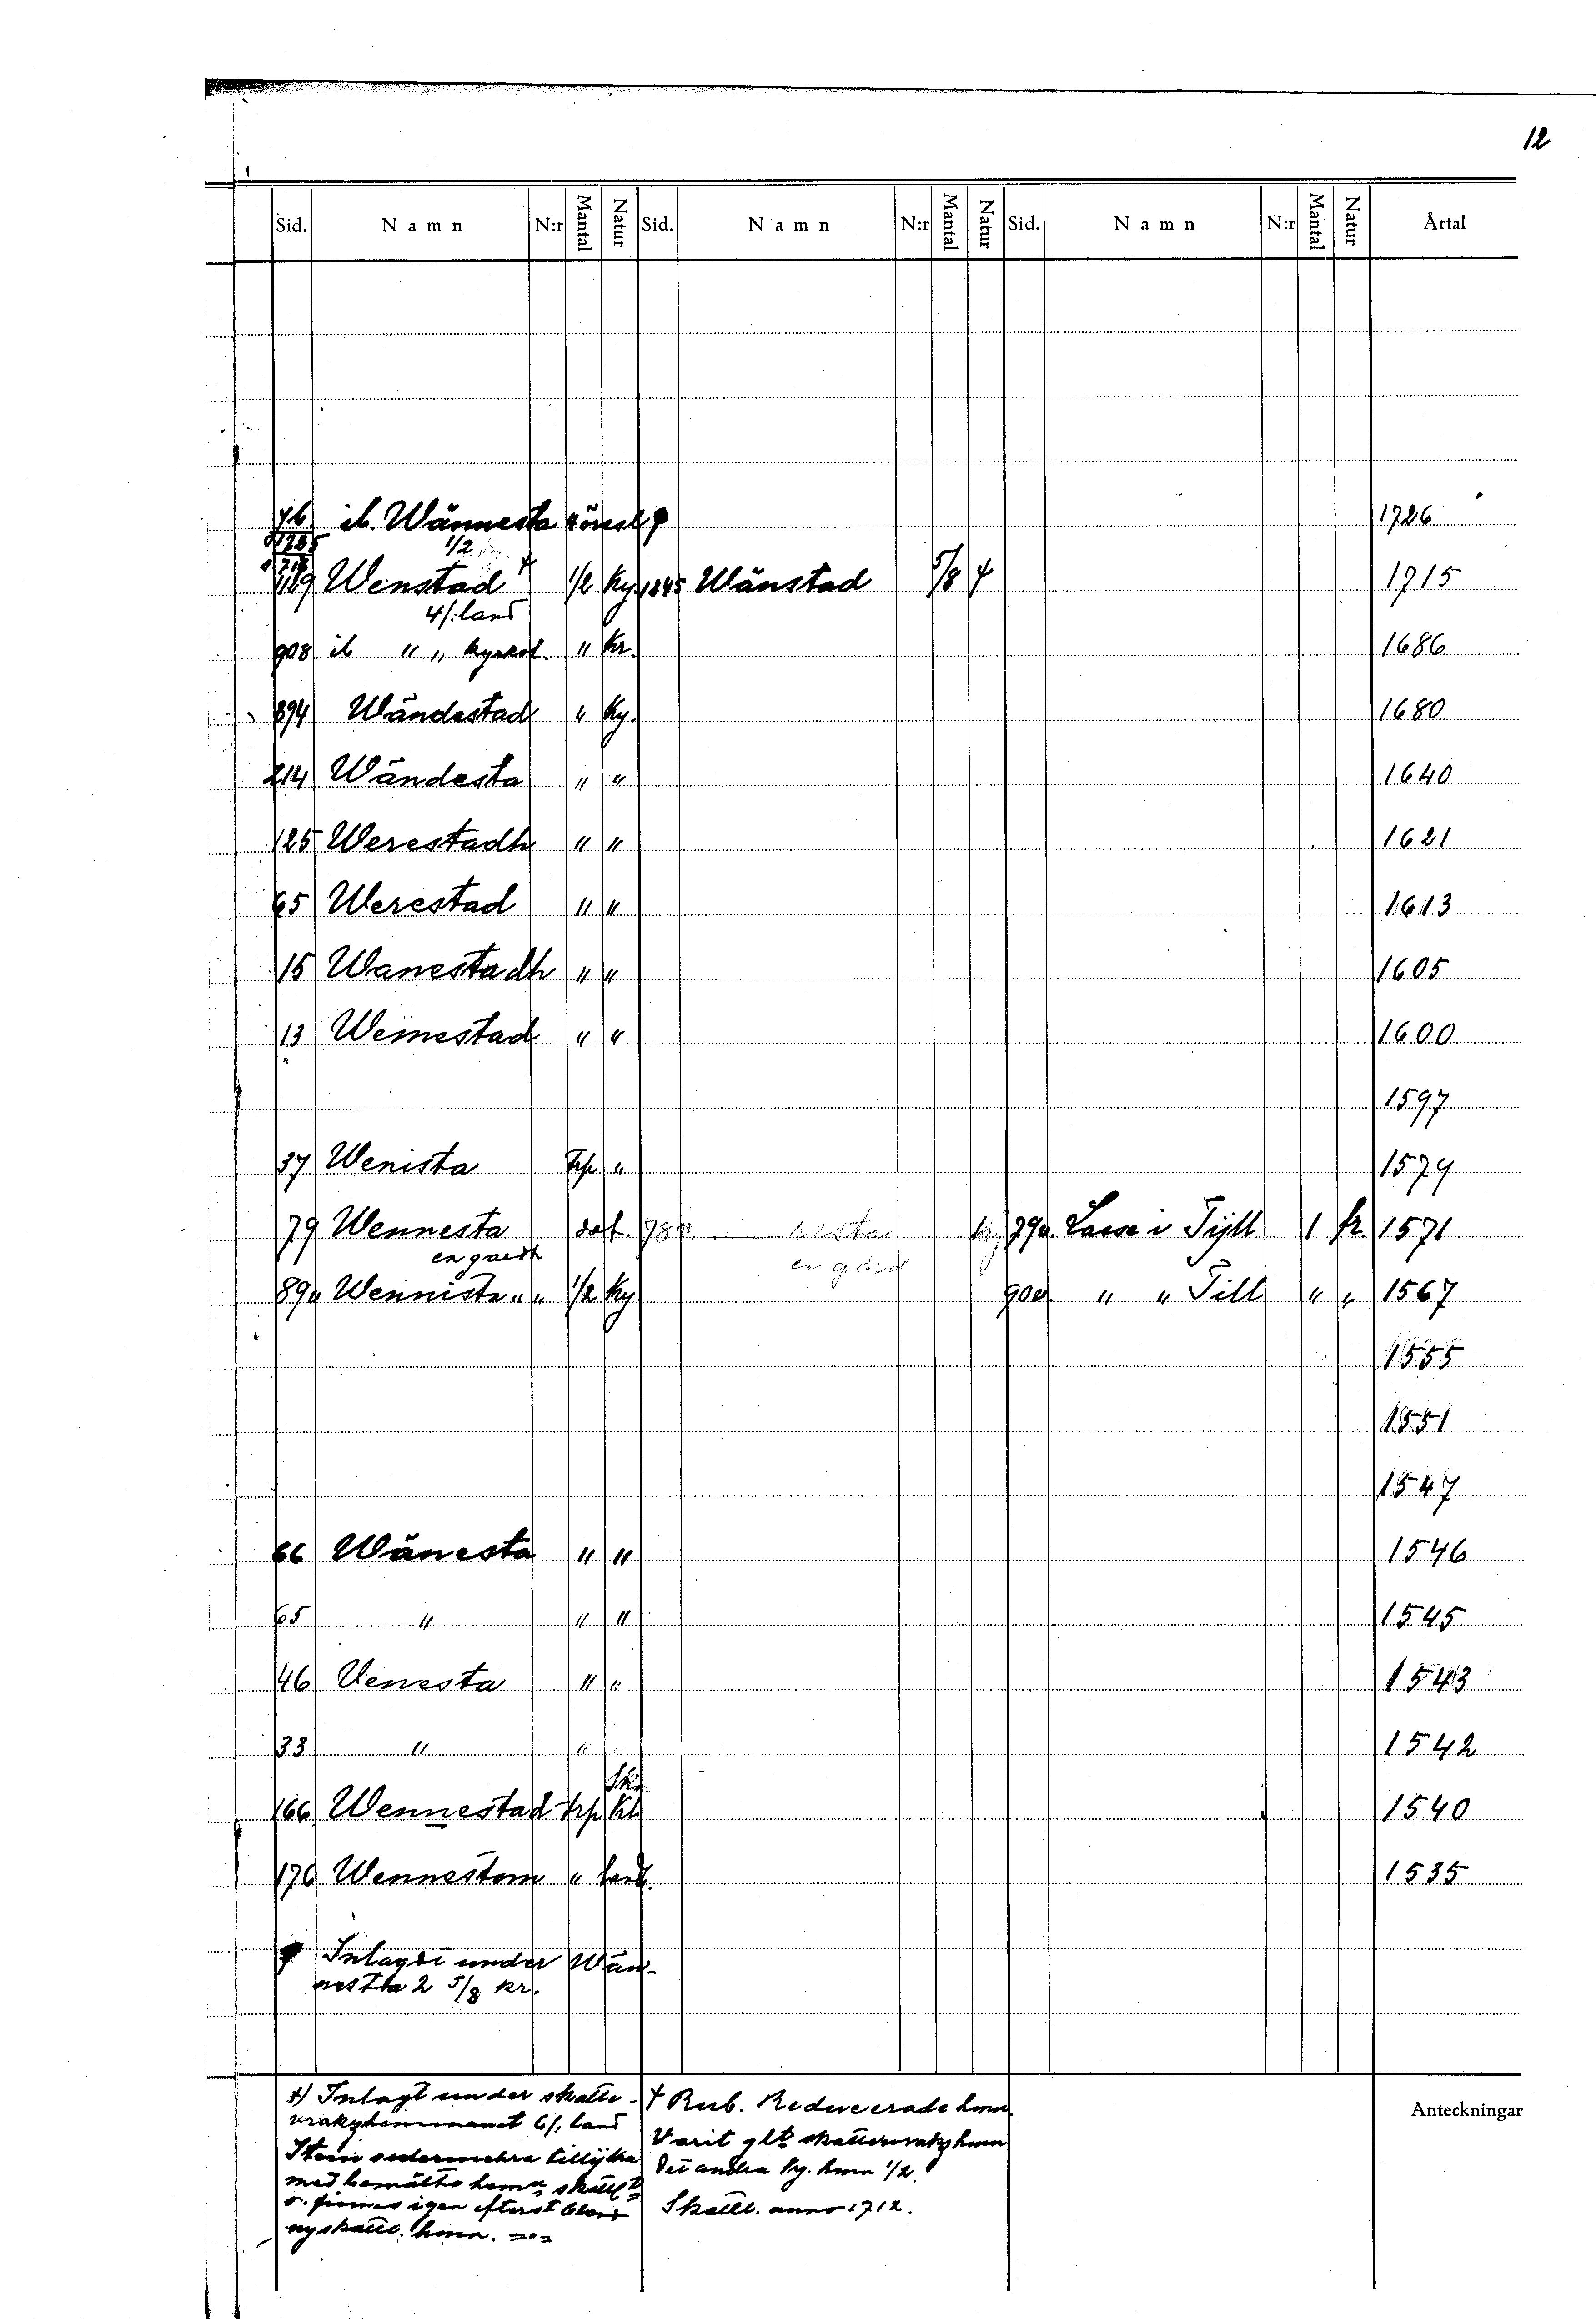 12
Sid. Namn N:r Mantal Natur Sid. Namn N:r Mantal Natur Sid. Namn N:r Mantal Natur Årtal
ib. Wännesta öresl. 1726
1/2
1189 Wenstad + 1/2 Ky. 1245 Wänstad 5/8 + 1715
4/: land
908 ib " " kyrkoh. " Kr. 1686
894 Wändestad " Ky. 1680
214 Wändesta " " 1640
125 Werestadh " " 1621
65 Werestad " " 1613
15 Wanestadh " " 1605
13 Wemestad " " 1600
1597
37 Wenista Trp " 1579
79 Wennesta 78 nesta 79u. Lasse i Tijll 1 fr. 1571
en gardh en gård
89u Wennista " " 1/2 Ky 90u. " " Till " " 1567
1555
1551
1547
66 Wänesta " " 1546
65 " " " 1545
46 Venesta " " 1543
33 " " 1542
Sk.
166 Wennestad trp Kb 1540
176 Wennestom " land. 1535
Inlagdt under Wän-
nesta 2 5/8 kr.
+) Inlagt under skatte-
vrakyhemmanet 6/: land
Item sedermehra tillijka
med bemälte hemn skattl
o. finnes igen efterst bland
nyskatte. hmn. ="=
+ Rub. Reducerade hmn.
Varit glt skattevraky hmn
det andra Ky. hmn 1/2.
Skattl. anno 1712.
Anteckningar